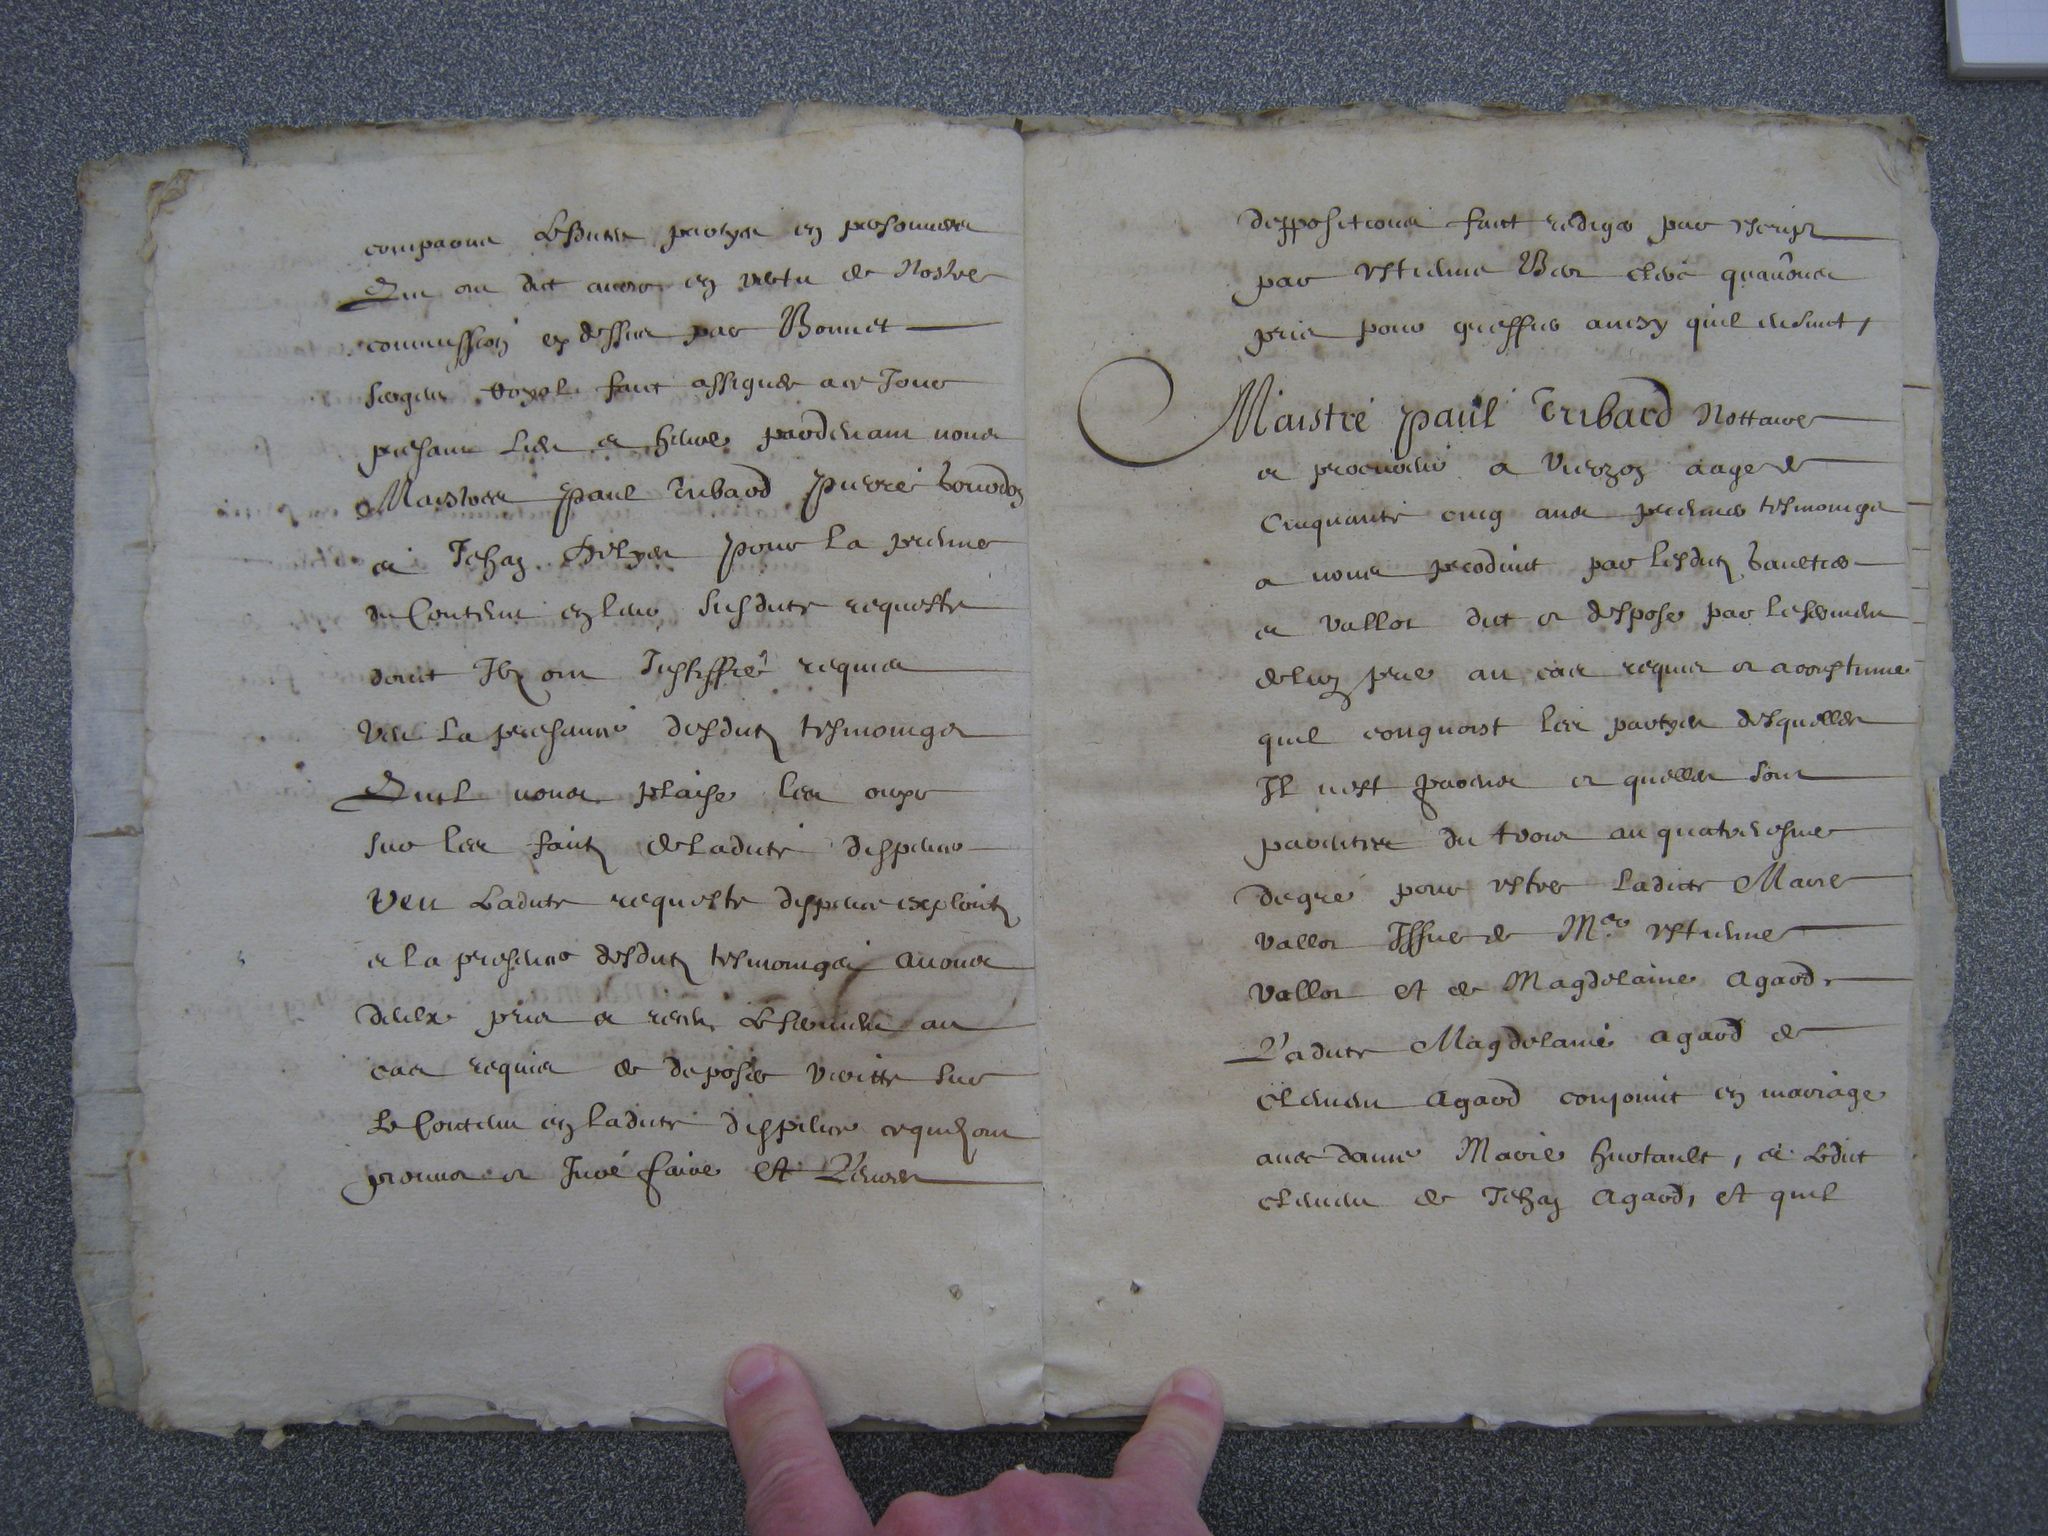 comparus lesdictes partyes en personnes
Qui ont dict avoir en vertu de Nostre
commission cy dessus par Bonnet
sergent royal faict assigner a ce Jour
presant lieu et heure pardevant nous
Maistres Paul Tribard Pierre
et Jehan pour la preuve
du Contenu en leur susdicte requeste
dont Ilz ont Justiffié requis
veu la presance desdictz tesmoings
Quil nous plaise les ouyr
sur les faictz de ladicte dispence
Veu Ladicte requeste dispence exploictz
et la presence desdictz tesmoings avons
deulx pris et receu Le serment au
cas requis de deposer veritté sur
Le Contenu en ladicte dispence ce quilz ont
promis et Juré faire Et Leurs
deppositions faict rediger par escript
par estienne clerc quavons
pris pour greffier ainsy quil ensuict,
Maistre Paul Tribard Nottaire
et procureur a Vierzon aage de
Cinquante cinq ans premier tesmoing
a nous produict par lesdictz
et Vallot dict et depose par le serment
de luy pris au cas requis et acoustume
quil congnoist les partyes desquelles
Il nest parent et quelles sont
parentes du trois au quatriesme
degré pour estre ladicte Marie
Vallot Issue de Me estienne
Vallot et de Magdelaine Agard,
Ladicte Magdelaine agard de
Clement Agard conjoinct en mariage
avec dame Marie hurtault, et Ledict
Clement de Jehan Agard, et quil